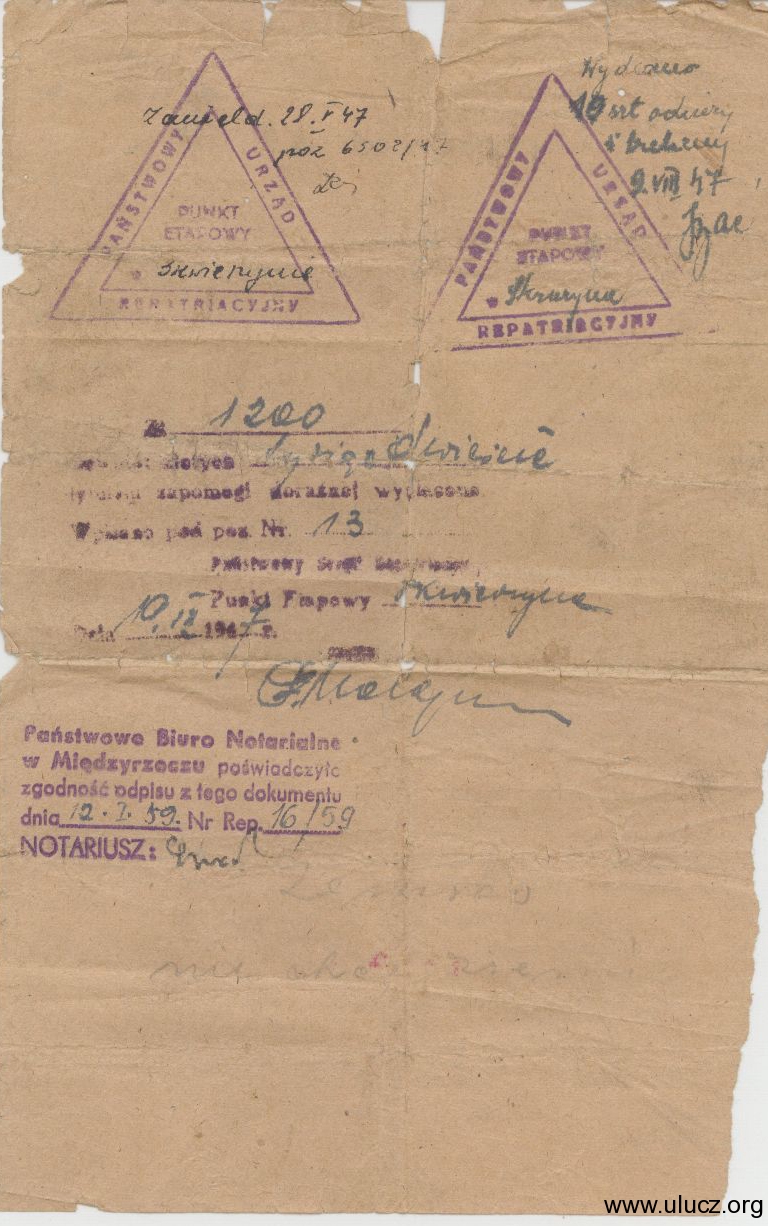 Zameld. 28.V.47
poz 6502/47
PAŃSTWOWY URZĄD
PUNKT
ETAPOWY
w Skwierzynie
REPATRIACYJNY
Wydano
10 szt odzieży
i bielizny
9.VIII 47
PAŃSTWOWY URZĄD
PUNKT
ETAPOWY
w Skwierzyna
REPATRIACYJNY
Zł 1200
złotych tysiąc dwieście
tytułem zapomogi doraźnej wypłacono
Wpisano pod poz. Nr. 13
Państwowy Urząd
Punkt Etapowy Skwierzyna
10.IX 1947 r.
Państwowe Biuro Notarialne
w Międzyrzeczu poświadczyło
zgodność odpisu z tego dokumentu
dnia 12.I.59. Nr Rep. 16/59
NOTARIUSZ:
nie
www.ulucz.org